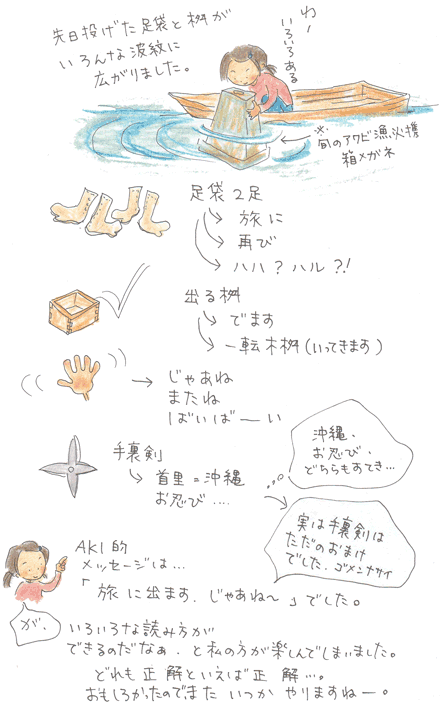 先日投げた足袋と桝が
いろんな波紋に
広がりました。
わー
いろいろある
※
旬のアワビ漁必携
箱メガネ
足袋2足
旅に
再び
ハハ?ハル?!
出る桝
でます
一転木桝(いってきます)
じゃあね
またね
ばいばーい
手裏剣
首里=沖縄
お忍び‥‥
沖縄、
お忍び、
どちらもすてき…
実は手裏剣は
ただのおまけ
でした.ゴメンナサイ
AKI的
メッセージは…
「旅に出ます.じゃあね〜」でした。
が、
いろいろな読み方が
できるのだなぁ、と私の方が楽しんでしまいました。
どれも正解といえば正解…。
おもしろかったのでまたいつかやりますねー。